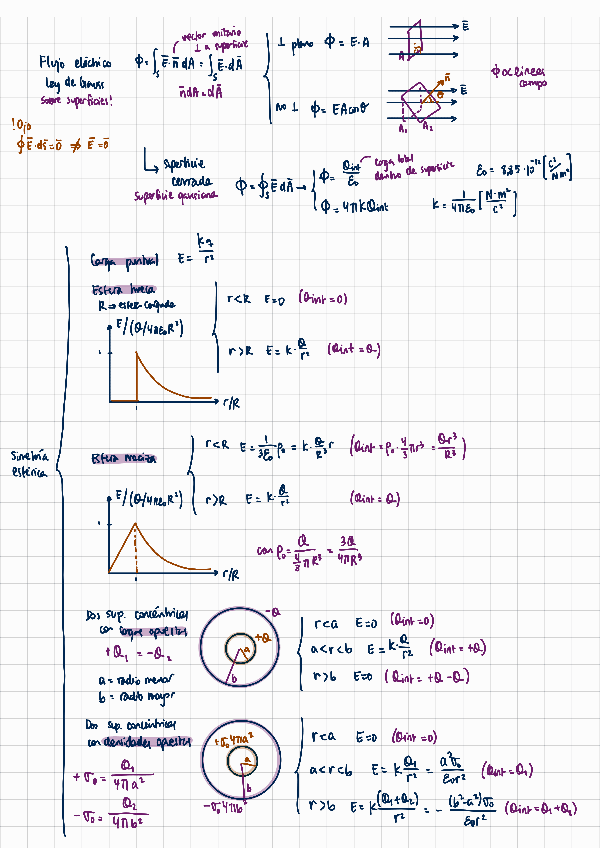 Flujo eléctrico
Ley de Gauss
sobre superficies!
vector unitario
⊥ a superficie
Φ = ∫_S E̅·n̅ dA = ∫_S E̅·dA̅
n̅dA = dA̅
⊥ plano Φ = E·A
no ⊥ Φ = EA cosθ
A n̅ E̅
n̅ θ E̅
A₁ A₂
Φ ∝ líneas
campo
! Ojo
∮E̅·ds̅ = 0 ⇏ E̅ = 0̅
↳ superficie
cerrada
superficie gaussiana
Φ = ∮_S E̅ dA̅ →
Φ = Qint/ε₀
carga total
dentro de superficie
Φ = 4πkQint
ε₀ = 8,85·10⁻¹² [C²/Nm²]
k = 1/4πε₀ [N·m²/C²]
Simetría
esférica
Carga puntual E = kq/r²
Esfera hueca
R ⇒ esfera cargada
r<R E=0 (Qint=0)
r>R E = k·Q/r² (Qint = Q)
E/(Q/4πε₀R²)
r/R
Esfera maciza
r<R E = 1/3ε₀ ρ₀ r = k·Q/R³ r (Qint = ρ₀·4/3 πr³ = Qr³/R³)
r>R E = k·Q/r² (Qint = Q)
con ρ₀ = Q/(4/3 πR³) = 3Q/4πR³
E/(Q/4πε₀R²)
r/R
Dos sup. concéntricas
con cargas opuestas
+Q₁ = -Q₂
a = radio menor
b = radio mayor
-Q
+Q
a
b
r<a E=0 (Qint=0)
a<r<b E = k·Q/r² (Qint = +Q)
r>b E=0 (Qint = +Q-Q)
Dos sup. concéntricas
con densidades opuestas
+σ₀ = Q₁/4πa²
-σ₀ = Q₂/4πb²
+σ₀4πa²
a
b
-σ₀4πb²
r<a E=0 (Qint=0)
a<r<b E = k Q₁/r² = a²σ₀/ε₀r² (Qint = Q₁)
r>b E = k (Q₁+Q₂)/r² = - (b²-a²)σ₀/ε₀r² (Qint = Q₁+Q₂)